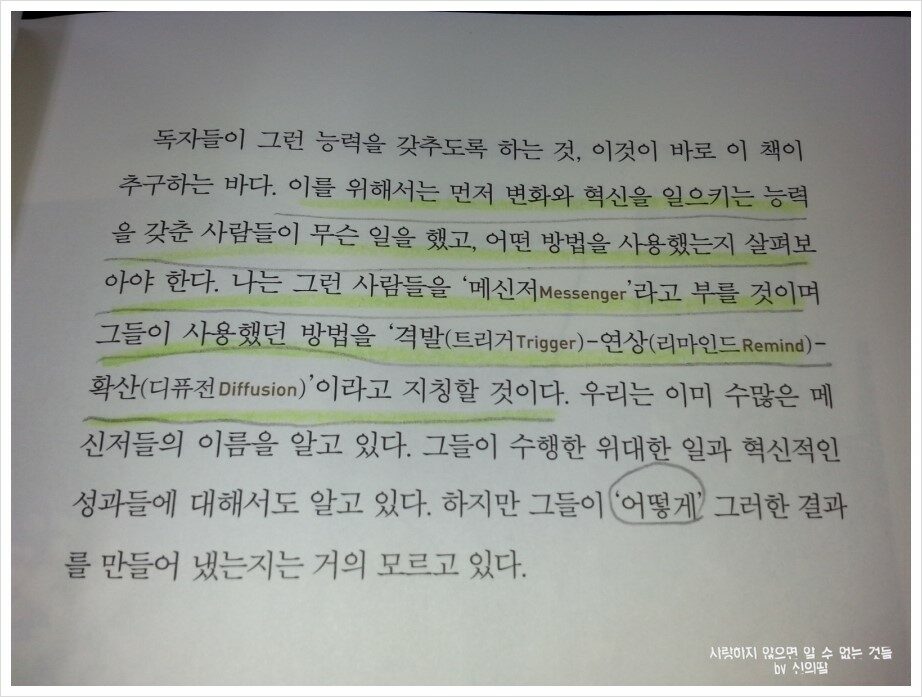 독자들이 그런 능력을 갖추도록 하는 것, 이것이 바로 이 책이
추구하는 바다. 이를 위해서는 먼저 변화와 혁신을 일으키는 능력
을 갖춘 사람들이 무슨 일을 했고, 어떤 방법을 사용했는지 살펴보
아야 한다. 나는 그런 사람들을 ‘메신저Messenger’라고 부를 것이며
그들이 사용했던 방법을 ‘격발(트리거Trigger)-연상(리마인드Remind)-
확산(디퓨전Diffusion)’이라고 지칭할 것이다. 우리는 이미 수많은 메
신저들의 이름을 알고 있다. 그들이 수행한 위대한 일과 혁신적인
성과들에 대해서도 알고 있다. 하지만 그들이 ‘어떻게’ 그러한 결과
를 만들어 냈는지는 거의 모르고 있다.
사랑하지 않으면 알 수 없는 것들
by 신의딸